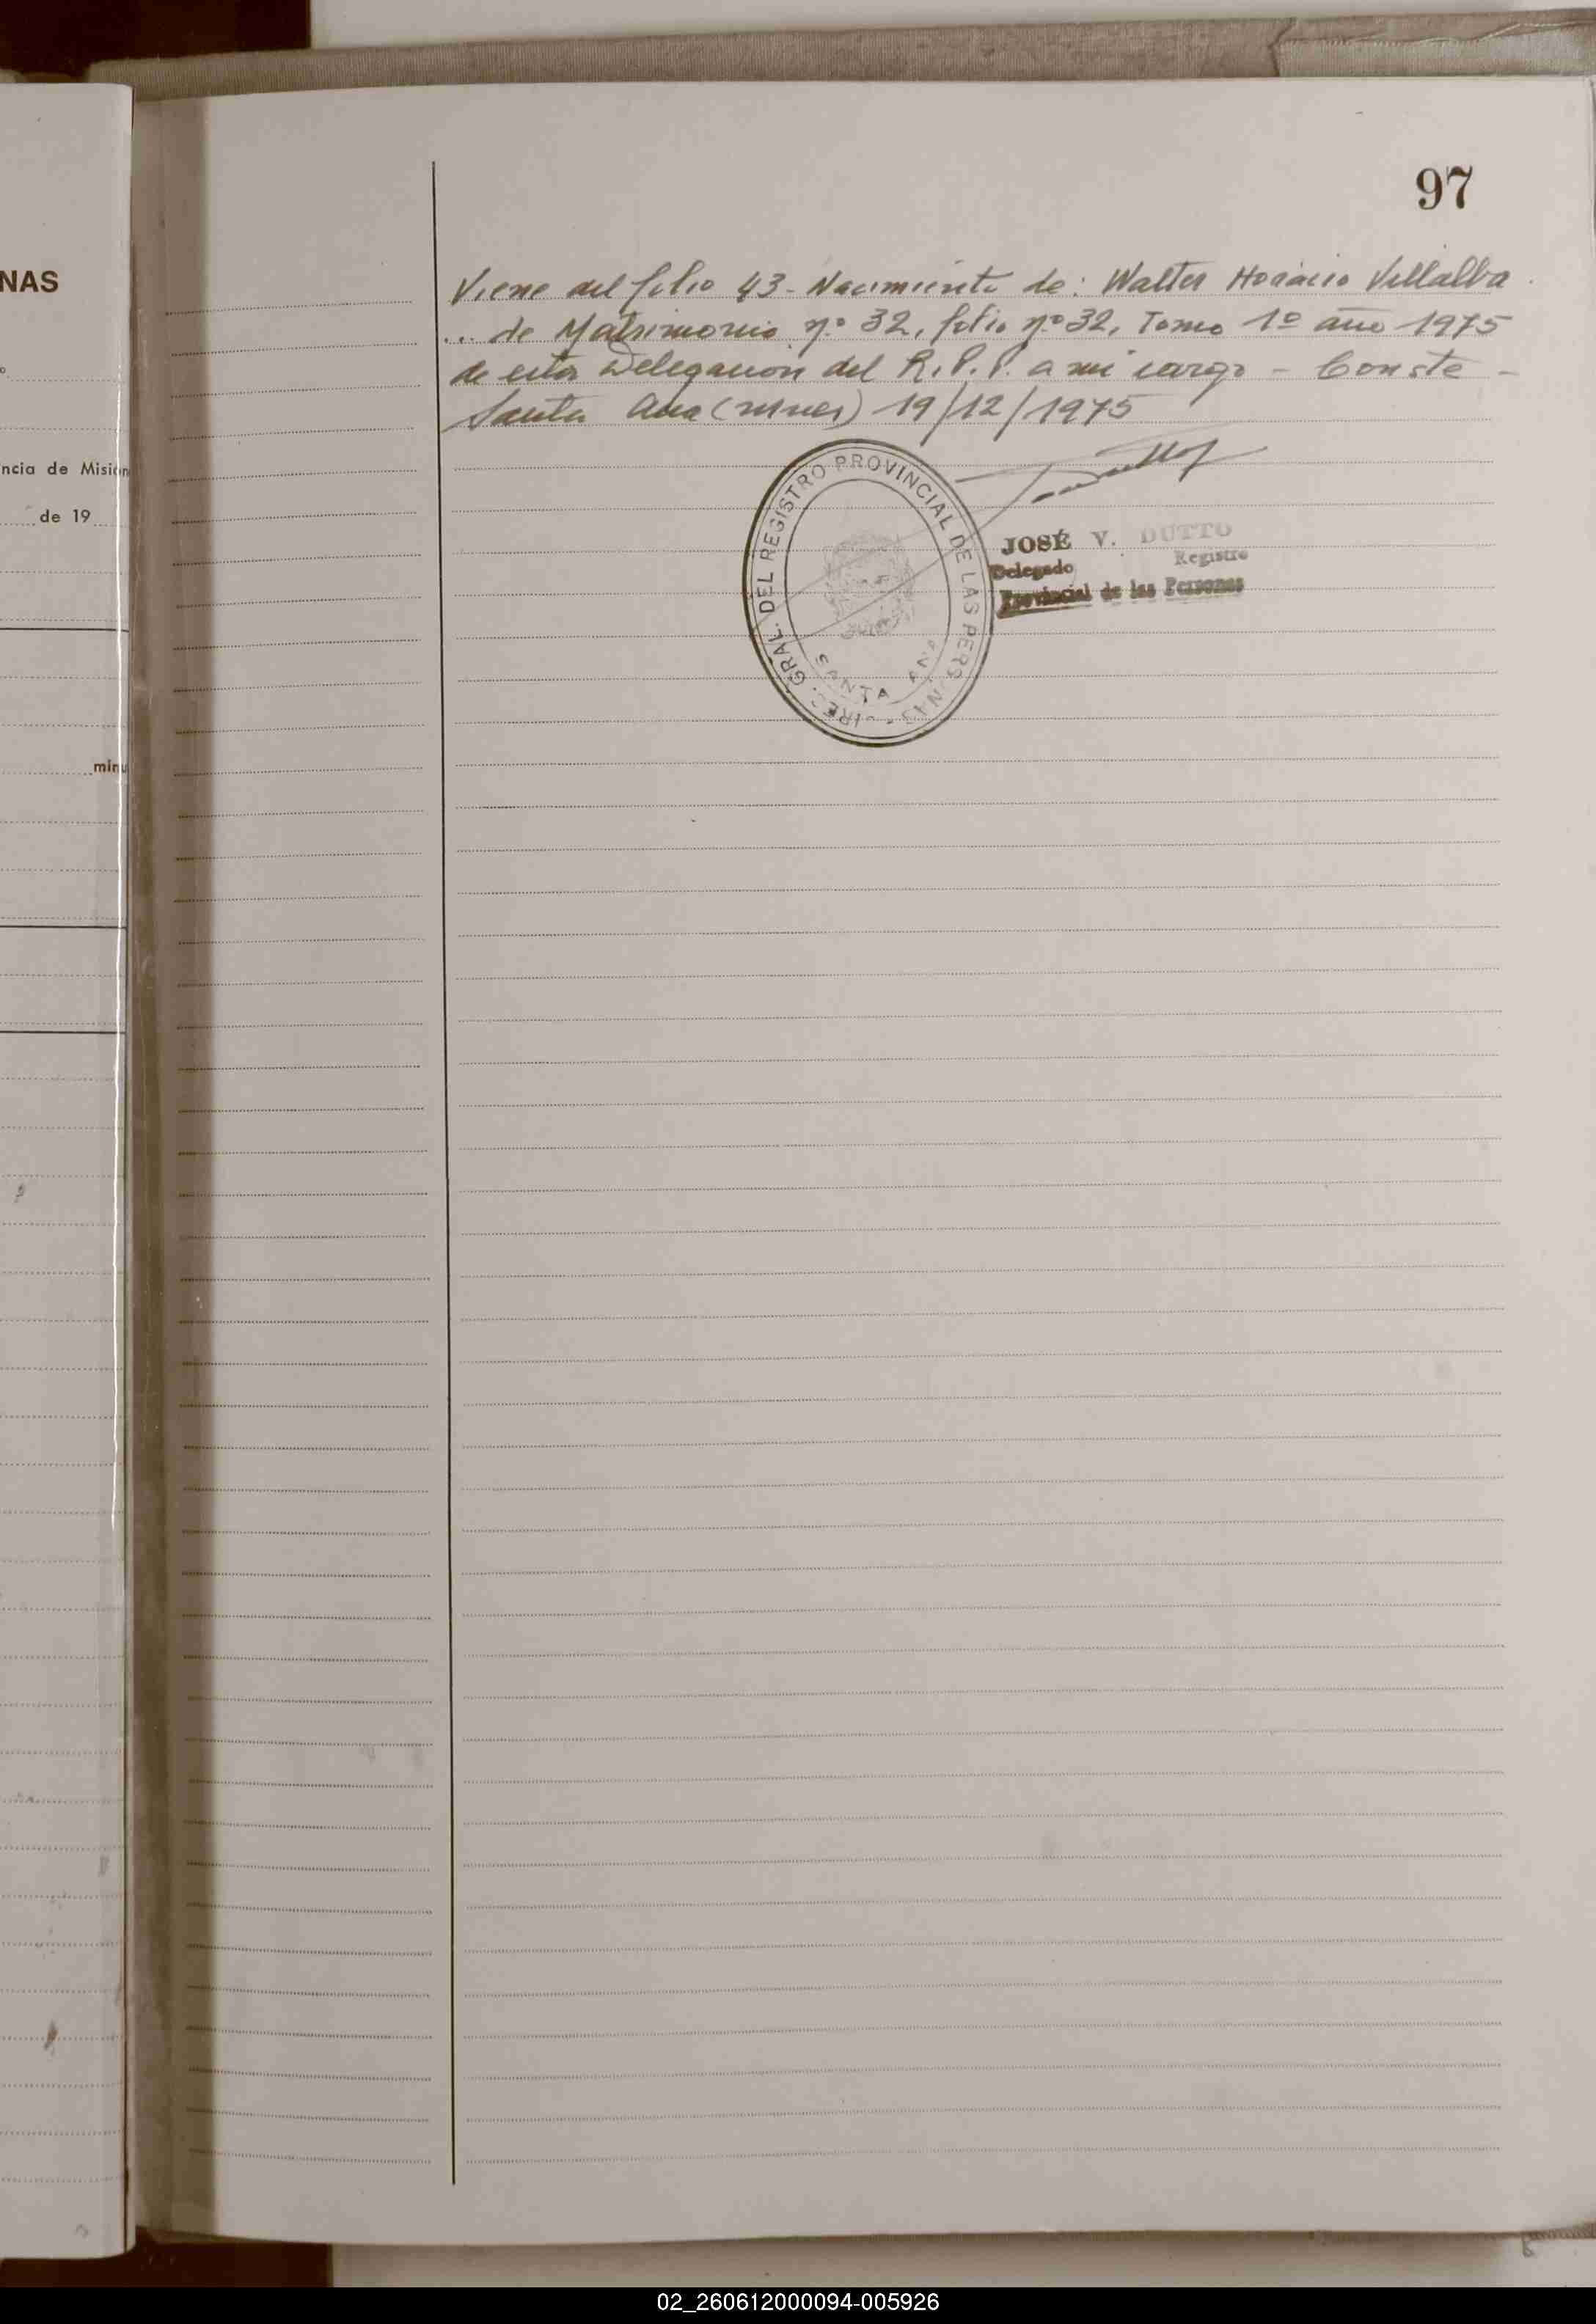 NAS
ncia de Mision
de 19
minu
97
Viene del folio 43 - Nacimiento de: Walter Horacio Villalba
... de Matrimonio nº 32, folio nº 32, Tomo 1º año 1975
de esta Delegación del R.P.P. a mi cargo - Conste -
Santa Ana (mnes) 19/12/1975
GRAL. DEL REGISTRO PROVINCIAL DE LAS PERSONAS
SANTA ANA
JOSÉ V. DUTTO
Delegado Registro
Provincial de las Personas
02_260612000094-005926